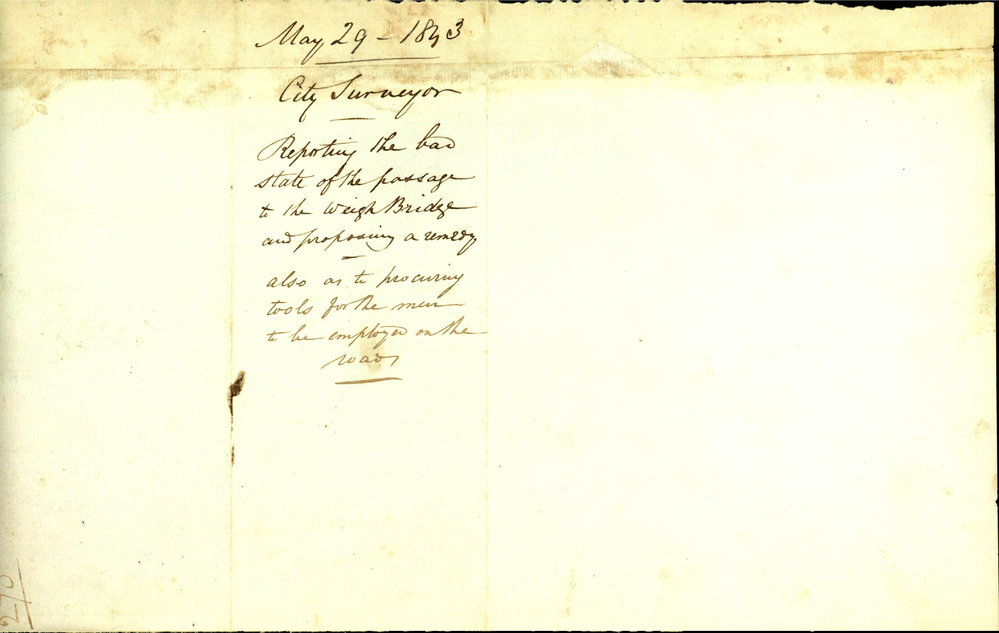 May 29 - 1843
City Surveyor
Reporting the bad
state of the passage
to the Weigh Bridge
and proposing a remedy
also as to procuring
tools for the men
to be employed on the
roads